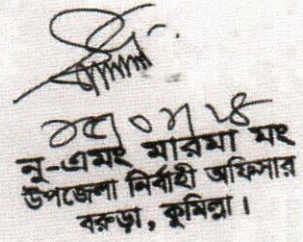 নু-এমং মারমা মং
উপজেলা নির্বাহী অফিসার
বরুড়া, কুমিল্লা।